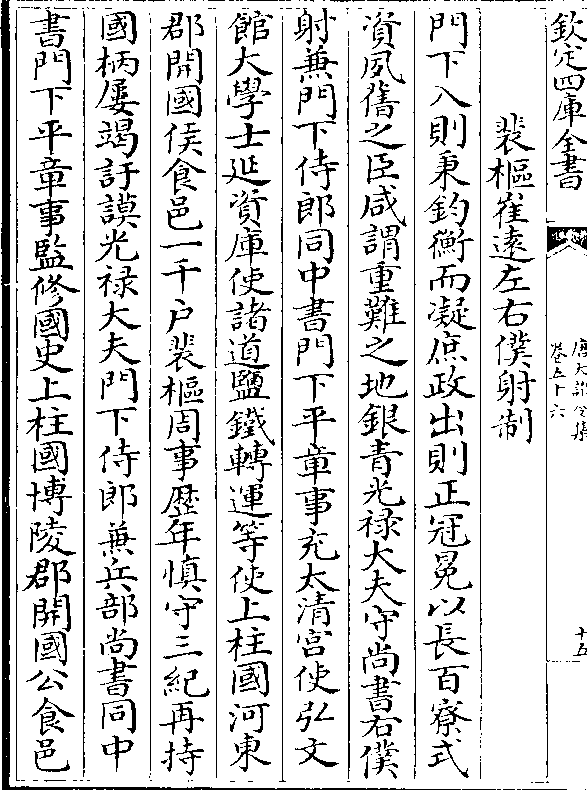 欽定四庫全書
唐大詔令集
卷五十六
十五
裴樞崔逺左右僕射制
門下入則秉鈞衡而凝庶政出則正冠冕以長百寮式
資夙舊之臣咸謂重難之地銀青光禄大夫守尚書右僕
射兼門下侍郎同中書門下平章事充太清宮使弘文
館大學士延資庫使諸道鹽鐵轉運等使上柱國河東
郡開國侯食邑一千户裴樞周事歴年慎守三紀再持
國柄屢竭訏謨光禄大夫門下侍郎兼兵部尚書同中
書門下平章事監修國史上柱國博陵郡開國公食邑